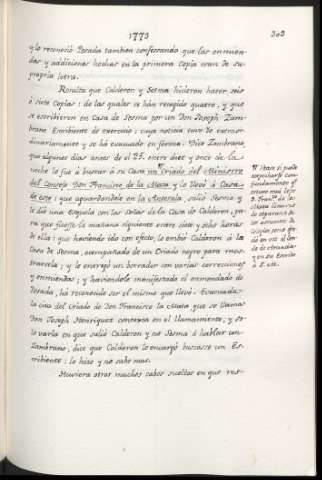 1773
303
y lo reconoció Posada tambien confesando que las enmien-
das y addiciones hechas en la primera Copia eran de su
propria letra.
Resulta que Calderon y Serma hicieron hacer seis
ó siete Copias: de las quales se han recogido quatro, y que
se escribieron en Casa de Serma por un Don Joseph Zam-
brano Escribiente de exercicio: cuya noticia tuve de extraor-
dinariamente y se há evacuado en forma. Dice Zambrano,
que algunos dias antes de el 25. enero diez y once de la
noche le fue á buscar á su Casa un Criado del Ministro
del Consejo Don Francisco de la Mata y lo llevó á Casa
de este: que aguardandole en la Antesala, salió Serma y
le dió una Esquela con las señas de la Casa de Calderon, pa-
ra que fuesse la mañana siguiente entre siete y ocho horas
de ella: que haviendo ido con efecto, le embió Calderon á la
Casa de Serma, acompañado de un Criado negro para mos-
trarsela; y le entregó un borrador con varias correcciones
y enmiendas; y haviendole manifestado el enmendado de
Posada, há reconocido ser el mismo que llevó. Evacuada
la cita del Criado de Don Francisco la Mata que se llama
Don Joseph Henriquez contexta en el llamamiento, y so-
lo varía en que salió Calderon y no Serma á hablar con
Zambrano; dice que Calderon le encargó buscasse un Es-
cribiente: lo hizo y no sabe mas.
Huviera otros muchos cabos sueltos en que res-
si puede
sospecharse con
fundamento qe
D. Franco. de la
Mata
la seguridad de